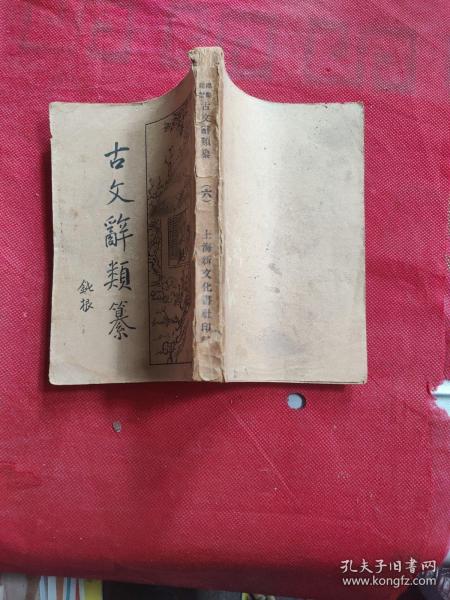 古文辭類纂
鈍根
古文辭類纂
(六)
上海新文化書社印
孔夫子旧书网
www.kongfz.com